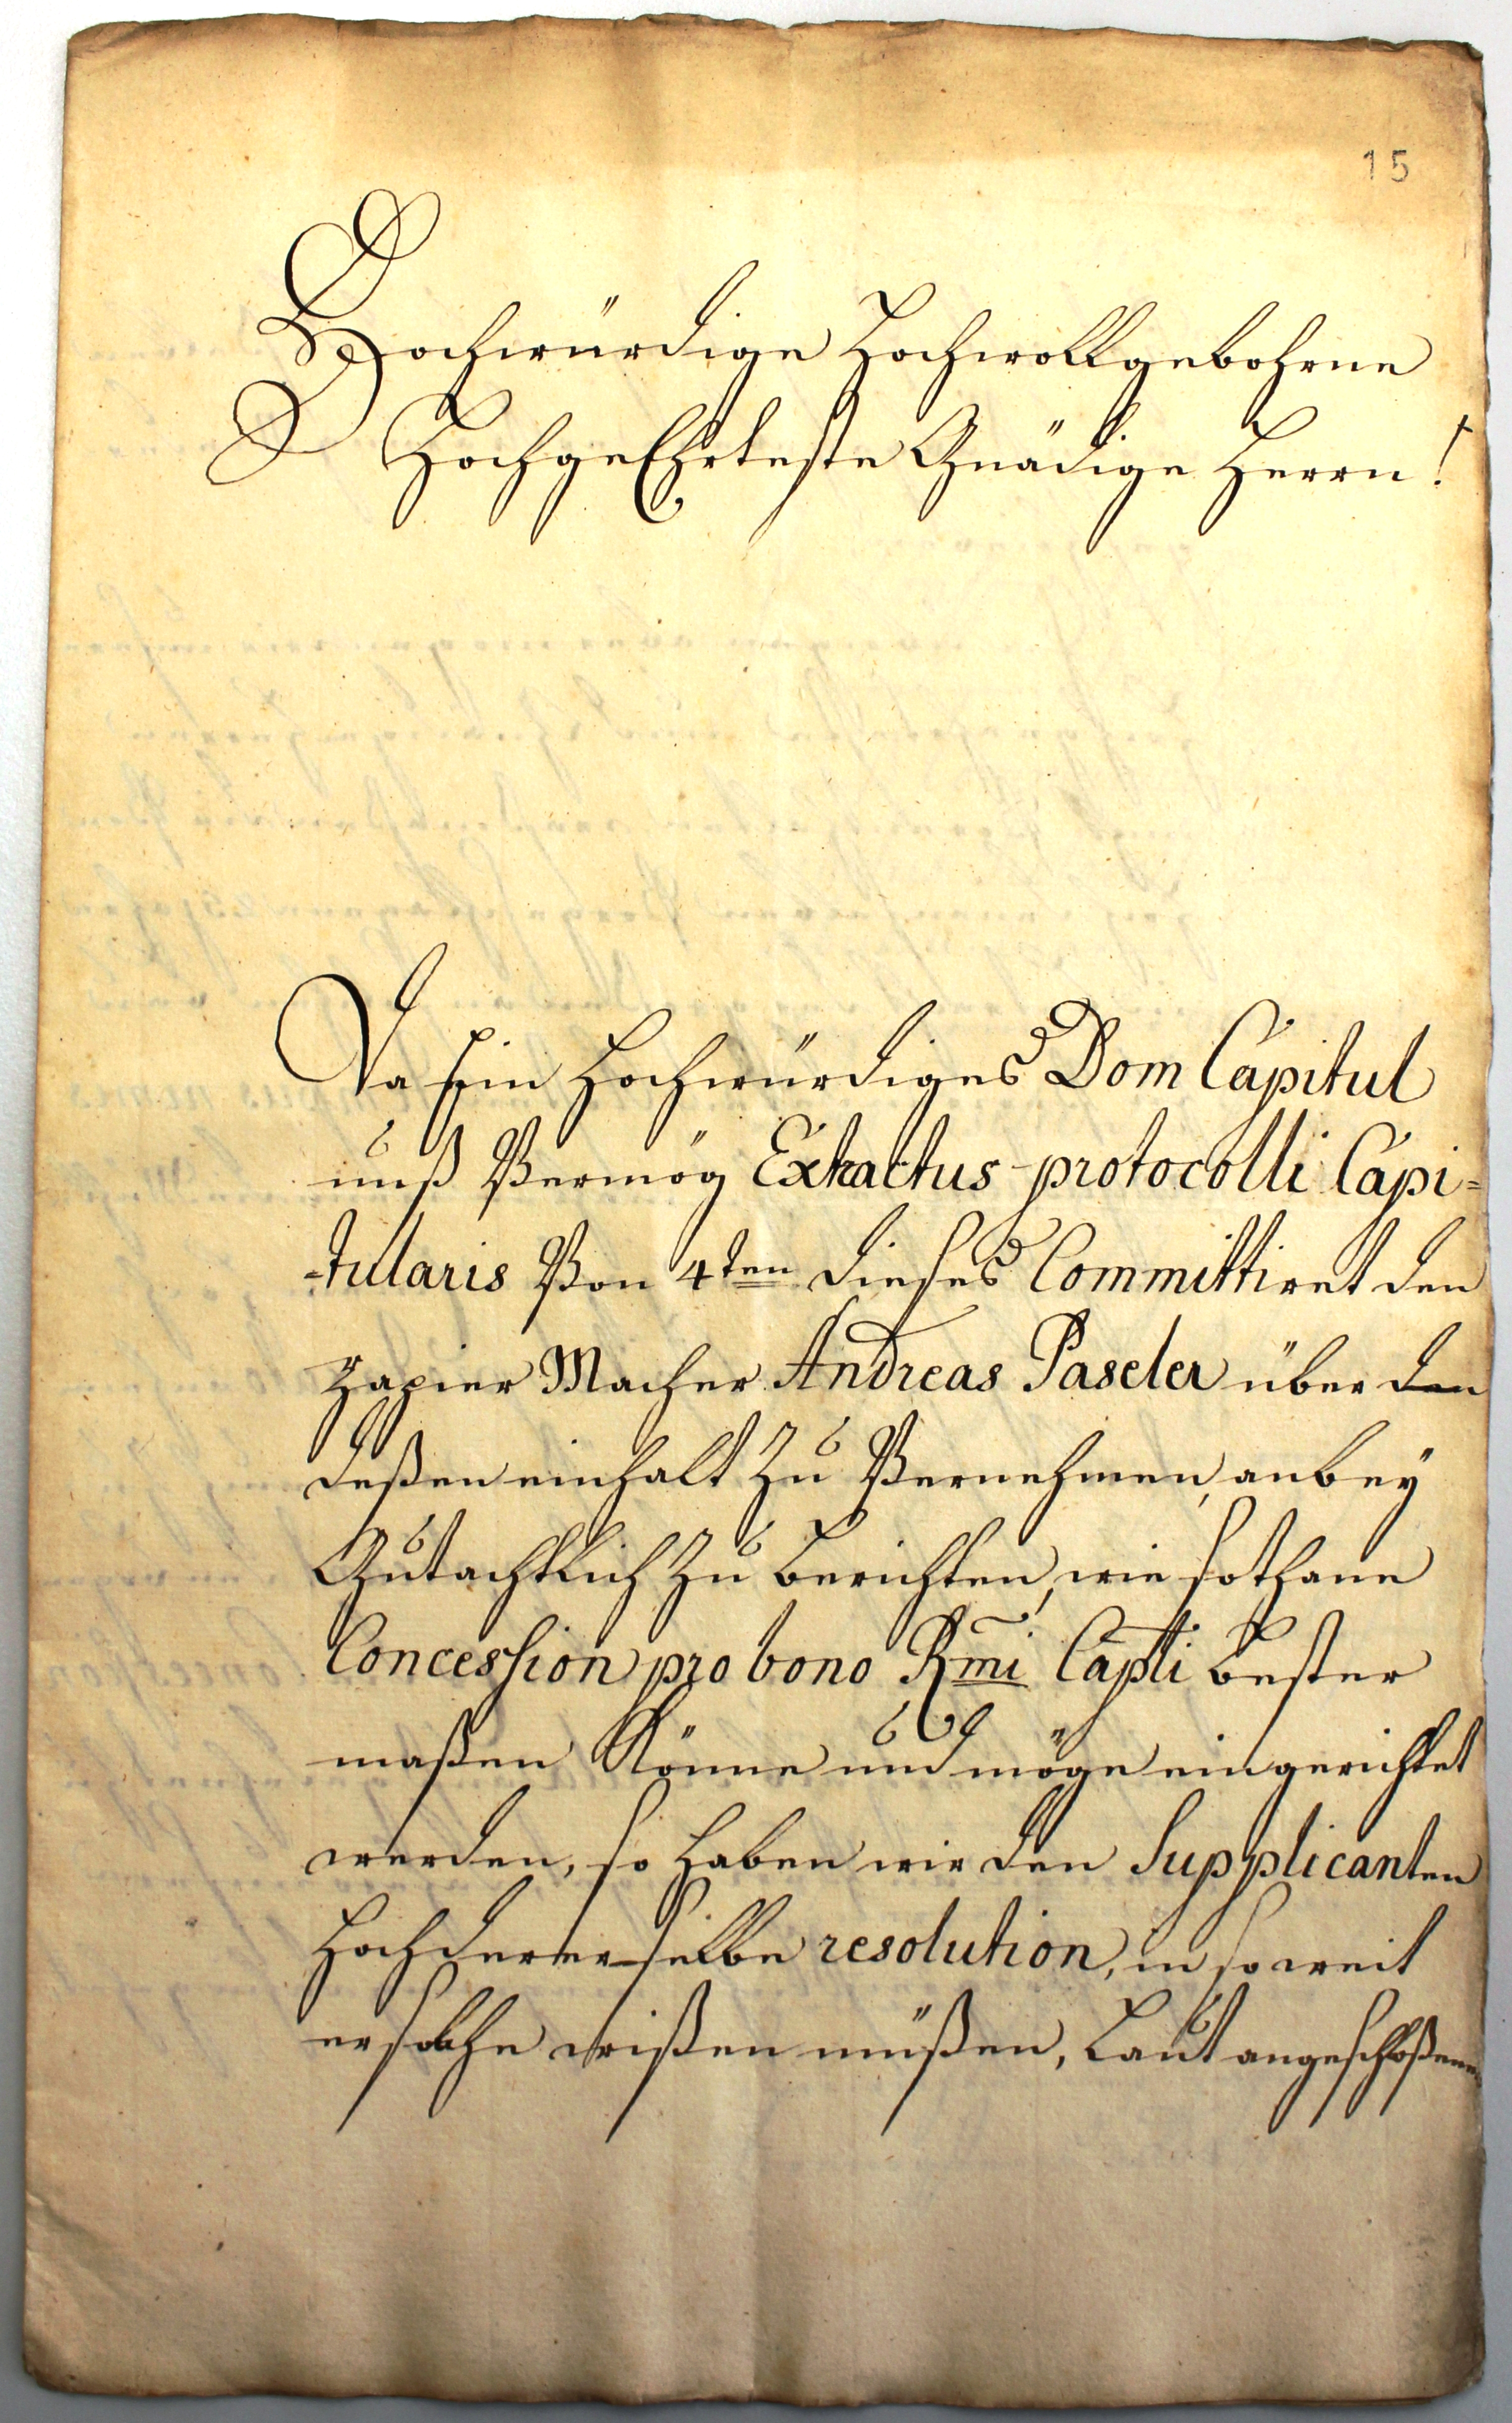 15
Hochwürdige Hochwollgebohrne
HochgeEhrteste Gnädige Herrn!
Da Ein Hochwürdiges Dom Capitul
unß Vermög Extractus protocolli Capi=
=tularis Von 4ten dieses Committiret den
Papier Macher Andreas Paseler über den
deßen einhalt Zu Vernehmen, anbey
Gutachtlich Zu berichten, wie sothane
Concession pro bono Rmi Capli bester
maßen Könne und möge eingerichtet
werden, so haben wir den Supplicanten
Hochdererselbe resolution, in so weit
er solche wißen müßen, Laut angeschloßenen